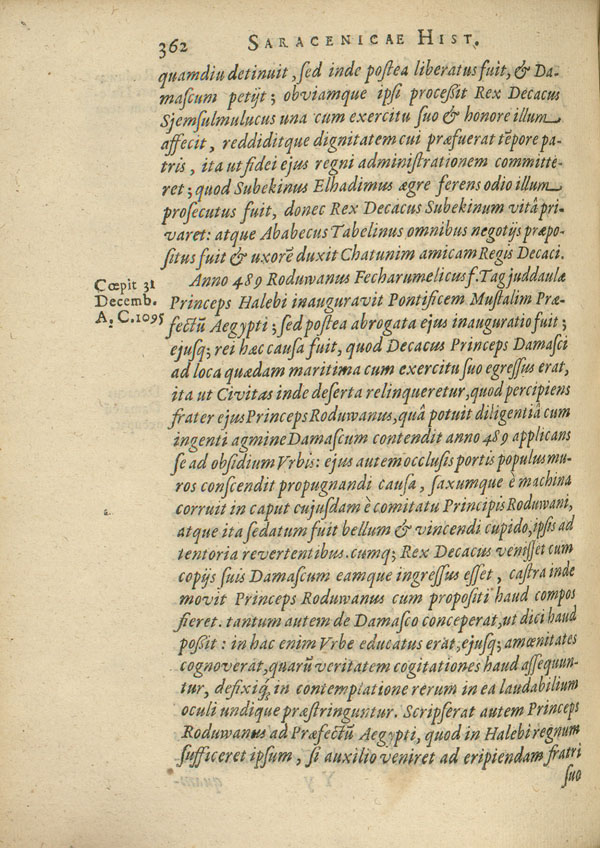 362 SARACENICAE HIST.
quamdiu detinuit, sed inde postea liberatus fuit, & Da-
mascum petijt; obviamque ipsi processit Rex Decacus
Sjemsulmulucus una cum exercitu suo & honore illum
affecit, reddiditque dignitatem cui præfuerat tẽpore pa-
tris, ita ut fidei ejus regni administrationem committe-
ret; quod Subekinus Elhadimus ægre ferens odio illum
prosecutus fuit, donec Rex Decacus Subekinum vitâ pri-
varet: atque Ababecus Tabelinus omnibus negotijs præpo-
situs fuit & uxorẽ duxit Chatunim amicam Regis Decaci.
Anno 489 Roduwanus Fecharumelicus f. Tagjuddaulæ
Cœpit 31
Decemb.
A, C. 1095
Princeps Halebi inauguravit Pontificem Mustalim Præ-
fectũ Aegypti; sed postea abrogata ejus inauguratio fuit;
ejusq; rei hæc causa fuit, quod Decacus Princeps Damasci
ad loca quædam maritima cum exercitu suo egressus erat,
ita ut Civitas inde deserta relinqueretur, quod percipiens
frater ejus Princeps Roduwanus, quâ potuit diligentiâ cum
ingenti agmine Damascum contendit anno 489 applicans
se ad obsidium Vrbis: ejus autem occlusis portis populus mu-
ros conscendit propugnandi causa, saxumque è machina
corruit in caput cujusdam è comitatu Principis Roduwani,
atque ita sedatum fuit bellum & vincendi cupido, ipsis ad
tentoria revertentibus. cumq; Rex Decacus venisset cum
copijs suis Damascum eamque ingressus esset, castra inde
movit Princeps Roduwanus cum propositi haud compos
fieret. tantum autem de Damasco conceperat, ut dici haud
possit: in hac enim Vrbe educatus erat, ejusq; amœnitates
cognoverat, quarũ veritatem cogitationes haud assequun-
tur, defixiq́; in contemplatione rerum in ea laudabilium
oculi undique præstringuntur. Scripserat autem Princeps
Roduwanus ad Præfectũ Aegypti, quod in Halebi regnum
sufficeret ipsum, si auxilio veniret ad eripiendam fratri
suo